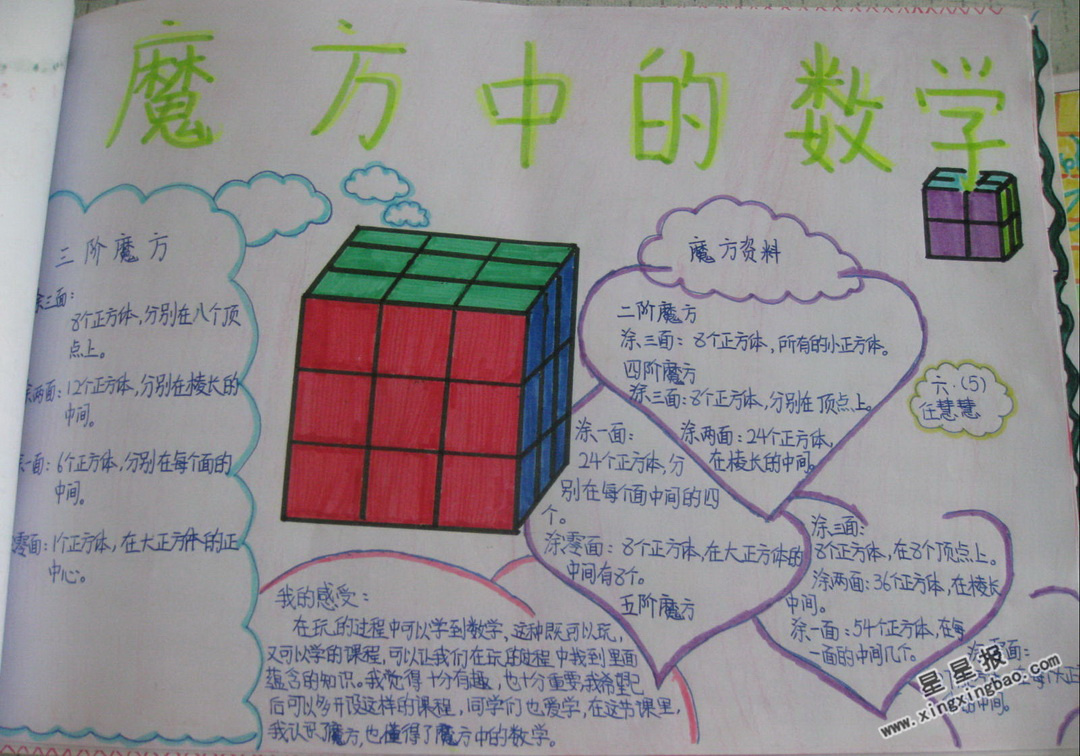 魔方中的数学
三阶魔方
涂三面:
8个正方体,分别在八个顶
点上。
涂两面:12个正方体,分别在棱长的
中间。
涂一面:6个正方体,分别在每个面的
中间。
涂零面:1个正方体,在大正方体的正
中心。
魔方资料
二阶魔方
涂三面:8个正方体,所有的小正方体。
四阶魔方
涂三面:8个正方体,分别在顶点上。
涂两面:24个正方体,
在棱长的中间。
涂一面:
24个正方体,分
别在每个面中间的四
个。
涂零面:8个正方体,在大正方体的
中间有8个。
五阶魔方
涂三面:
8个正方体,在8个顶点上。
涂两面:36个正方体,在棱长
中间。
涂一面:54个正方体,在每
一面的中间几个。
涂零面:
正
中间。
六.(5)
任慧慧
我的感受:
在玩的过程中可以学到数学,这种既可以玩,
又可以学的课程,可以让我们在玩的过程中找到里面
蕴含的知识。我觉得十分有趣,也十分重要,我希望已
后可以多开设这样的课程,同学们也爱学,在这节课里,
我认识了魔方,也懂得了魔方中的数学。
星星报
www.xingxingbao.com